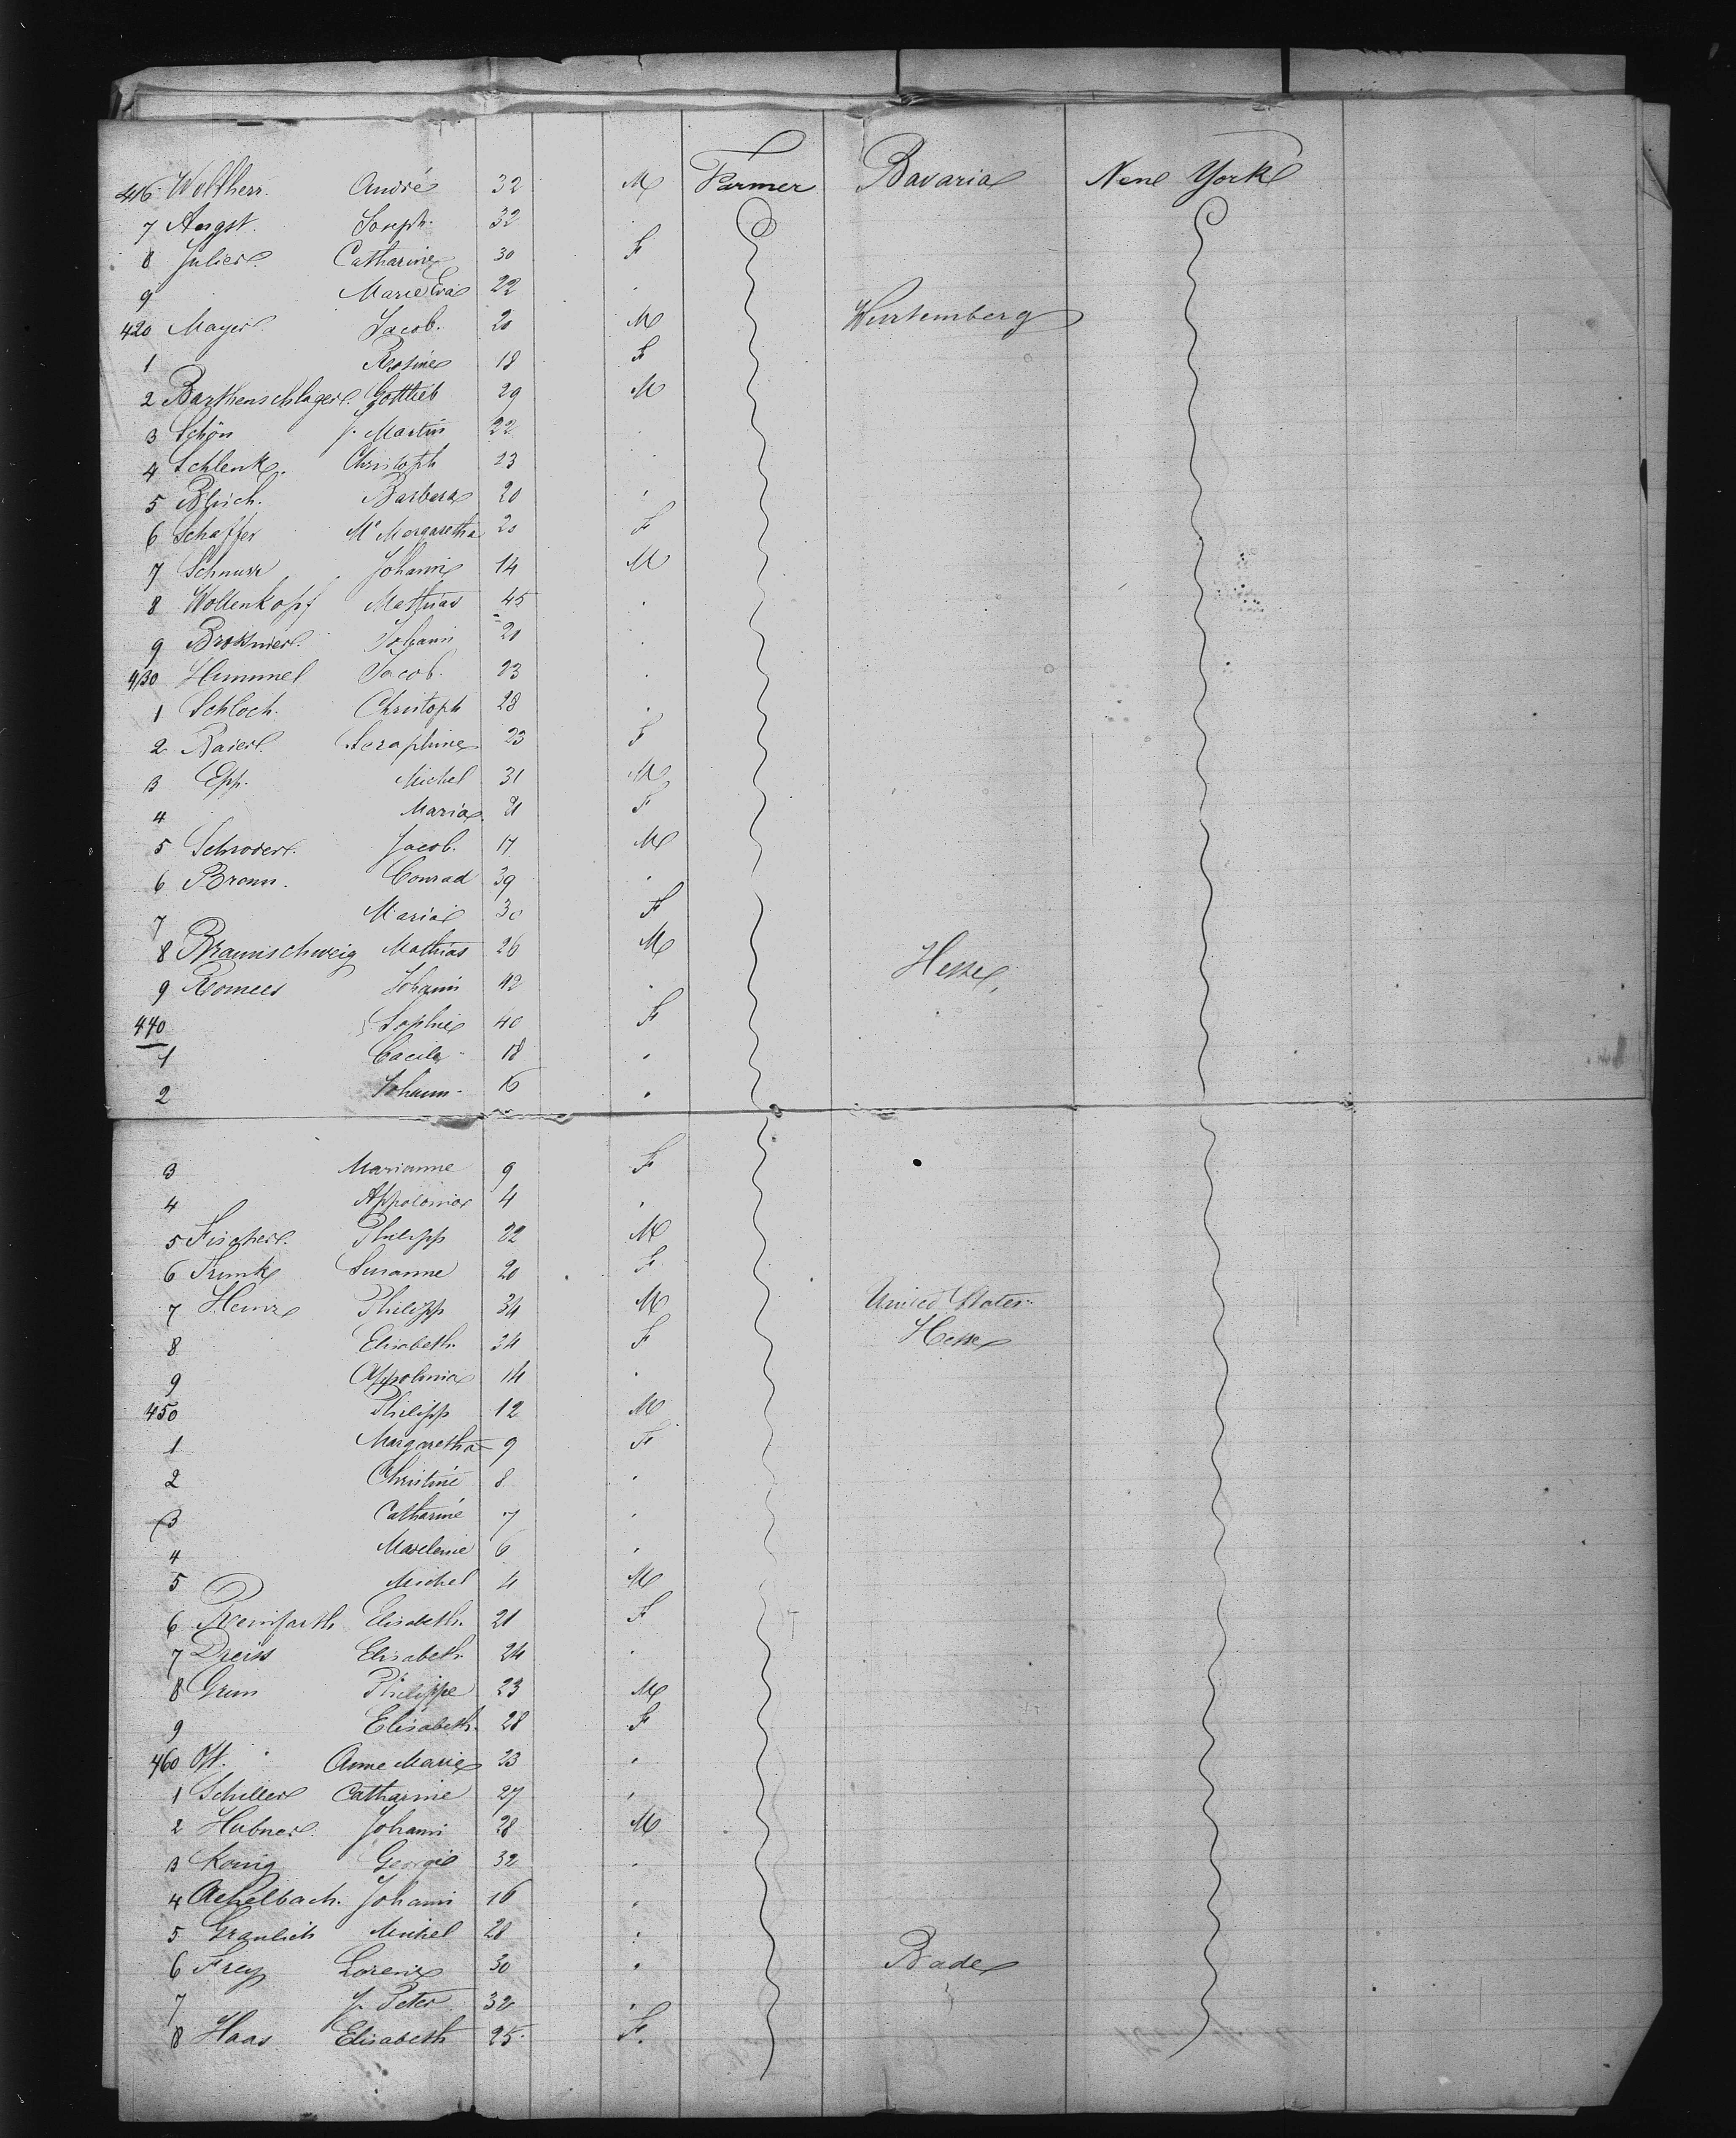 416 Weltherr. André 32 M Farmer Bavaria New York
7 Angst. Joseph. 32
8 Julier. Catharine 30 F
9 Marie Eva 22
420 Mayer. Jacob. 20 M Wurtemberg
1 Rosine 18 F
2 Barthenschlager. Gottlieb 29 M
3 Schön J. Martin 22
4 Schlenk. Christoph 23
5 Barbara 20
6 Schaffer Mᵉ Margaretha 20 F
7 Schnurr Johann 14 M
8 Wollenkopf Mathias 45
9 Johann 21
430 Hummel Jacob. 23
1 Schloch. Christoph 28
2 Baier. Seraphine 23 F
3 Epp. Michel 31 M
4 Maria 21 F
5 Schroder. Jacob. 17 M
6 Bronn. Conrad 39
7 Maria 30 F
8 Braunschweig Mathias 26 M Hesse
9 Johann 42
440 Sophie 40 F
1 Cacile 18
2 Johann 16
3 Marianne 9 F
4 Appolonia 4
5 Fischer. Philipp 22 M
6 Trunk Susanne 20 F
7 Heinz Philipp 34 M United States
8 Elisabeth. 34 F Hesse
9 Appolonia 14
450 Philipp 12 M
1 Margaretha 9 F
2 Christine 8
3 Catharine 7
4 6
5 Michel 4 M
6 Reinfarth Elisabeth. 21 F
7 Dreiss Elisabeth 24
8 Grun Philippe 23 M
9 Elisabeth. 28 F
460 Ott. Anne Marie 23
1 Schiller Catharine 27
2 Hubner. Johann 28 M
3 König George 32
4 Achelbach. Johann 16
5 Graulich Michel 28
6 Frey Lorenz 30 Bade
7 J. Peter 32
8 Haas Elisabeth 25 F.